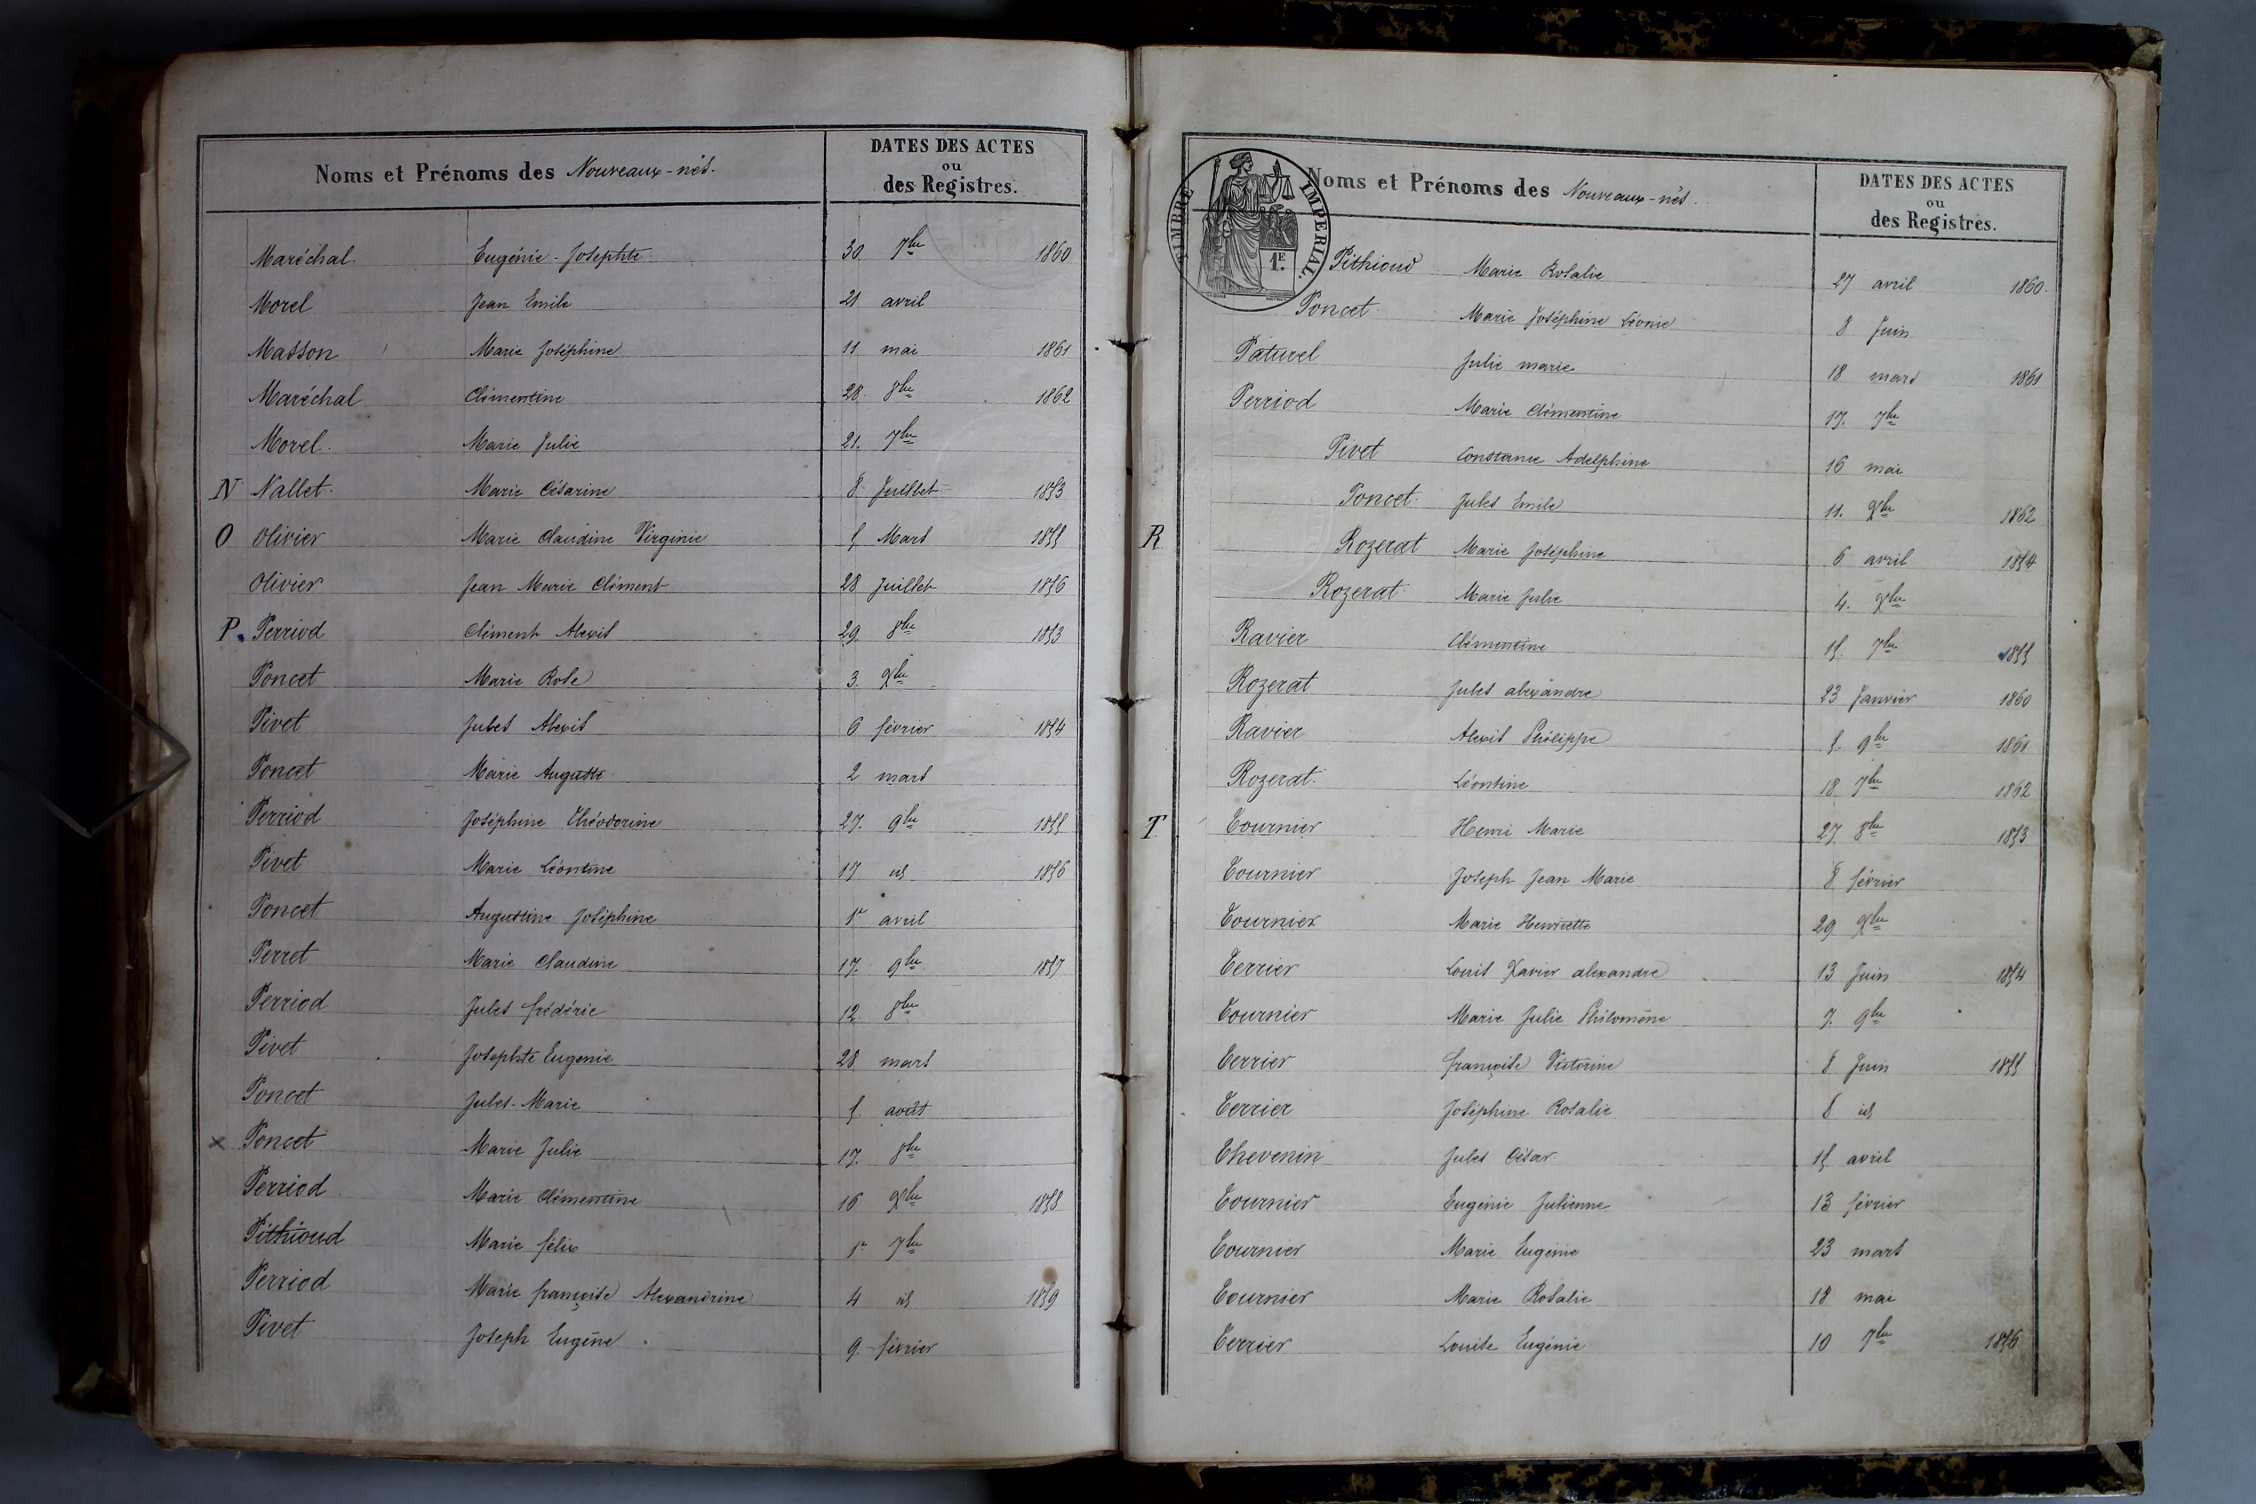 Noms et Prénoms des Nouveaux-nés.
DATES DES ACTES
ou
des Registres.
Maréchal Eugénie-Josephte 30 7bre 1860
Morel Jean Emile 21 avril
Masson Marie Joséphine 11 mai 1861
Maréchal Clémentine 28 8bre 1862
Morel. Marie Julie 21. 7bre
N Nallet. Marie Césarine 8 Juillet 1853
O Olivier Marie Claudine Virginie 5 Mars 1855
Olivier Jean Marie Clément 28 Juillet 1856
P. Perriod Clément Alexis 29 8bre 1853
Poncet Marie Rose 3. Xbre
Pivet Jules Alexis 6 février 1854
Poncet Marie Auguste 2 mars
Perriod Joséphine Théodorine 27. 9bre 1855
Pivet Marie Léontine 17 id 1856
Poncet Augustine Joséphine 1er avril
Perret Marie Claudine 17. 9bre 1857
Perriod Jules frédéric 12 8bre
Pivet Josephte Eugenie 28 mars
Poncet Jules-Marie 5 août
x Poncet Marie Julie 17. 8bre
Perriod Marie Clémentine 16 Xbre 1858
Pithioud Marie félix 1er 7bre
Perriod Marie françoise Alexandrine 4 id 1859
Pivet Joseph Eugène 9. février
TIMBRE IMPERIAL.
1E.
Noms et Prénoms des Nouveaux-nés.
DATES DES ACTES
ou
des Registres.
Pithioud Marie Rosalie 27 avril 1860.
Poncet Marie Joséphine Léonie 8 Juin
Paturel Julie marie 18 mars 1861
Perriod Marie Clémentine 17. 7bre
Pivet Constance Adelphine 16 mai
Poncet Jules Emile 11. Xbre 1862
R Rozerat Marie Joséphine 6 avril 1854
Rozerat Marie Julie 4. Xbre
Ravier Clémentine 15 7bre 1855
Rozerat Jules alexandre 23 Janvier 1860
Ravier Alexis Philippe 5. 9bre 1861
Rozerat. Léontine 18 7bre 1862
T Tournier Henri Marie 27 8bre 1853
Tournier Joseph Jean Marie 8 février
Tournier Marie Henriette 29 Xbre
Terrier Louis Xavier alexandre 13 Juin 1854
Tournier Marie Julie Philomène 7. 9bre
Terrier françoise Victorine 8 Juin 1855
Terrier Joséphine Rosalie 8 id
Thevenin Jules César 15 avril
Tournier Eugénie Julienne 13 février
Tournier Marie Eugénie 23 mars
Tournier Marie Rosalie 18 mai
Terrier Louise Eugénie 10 7bre 1856